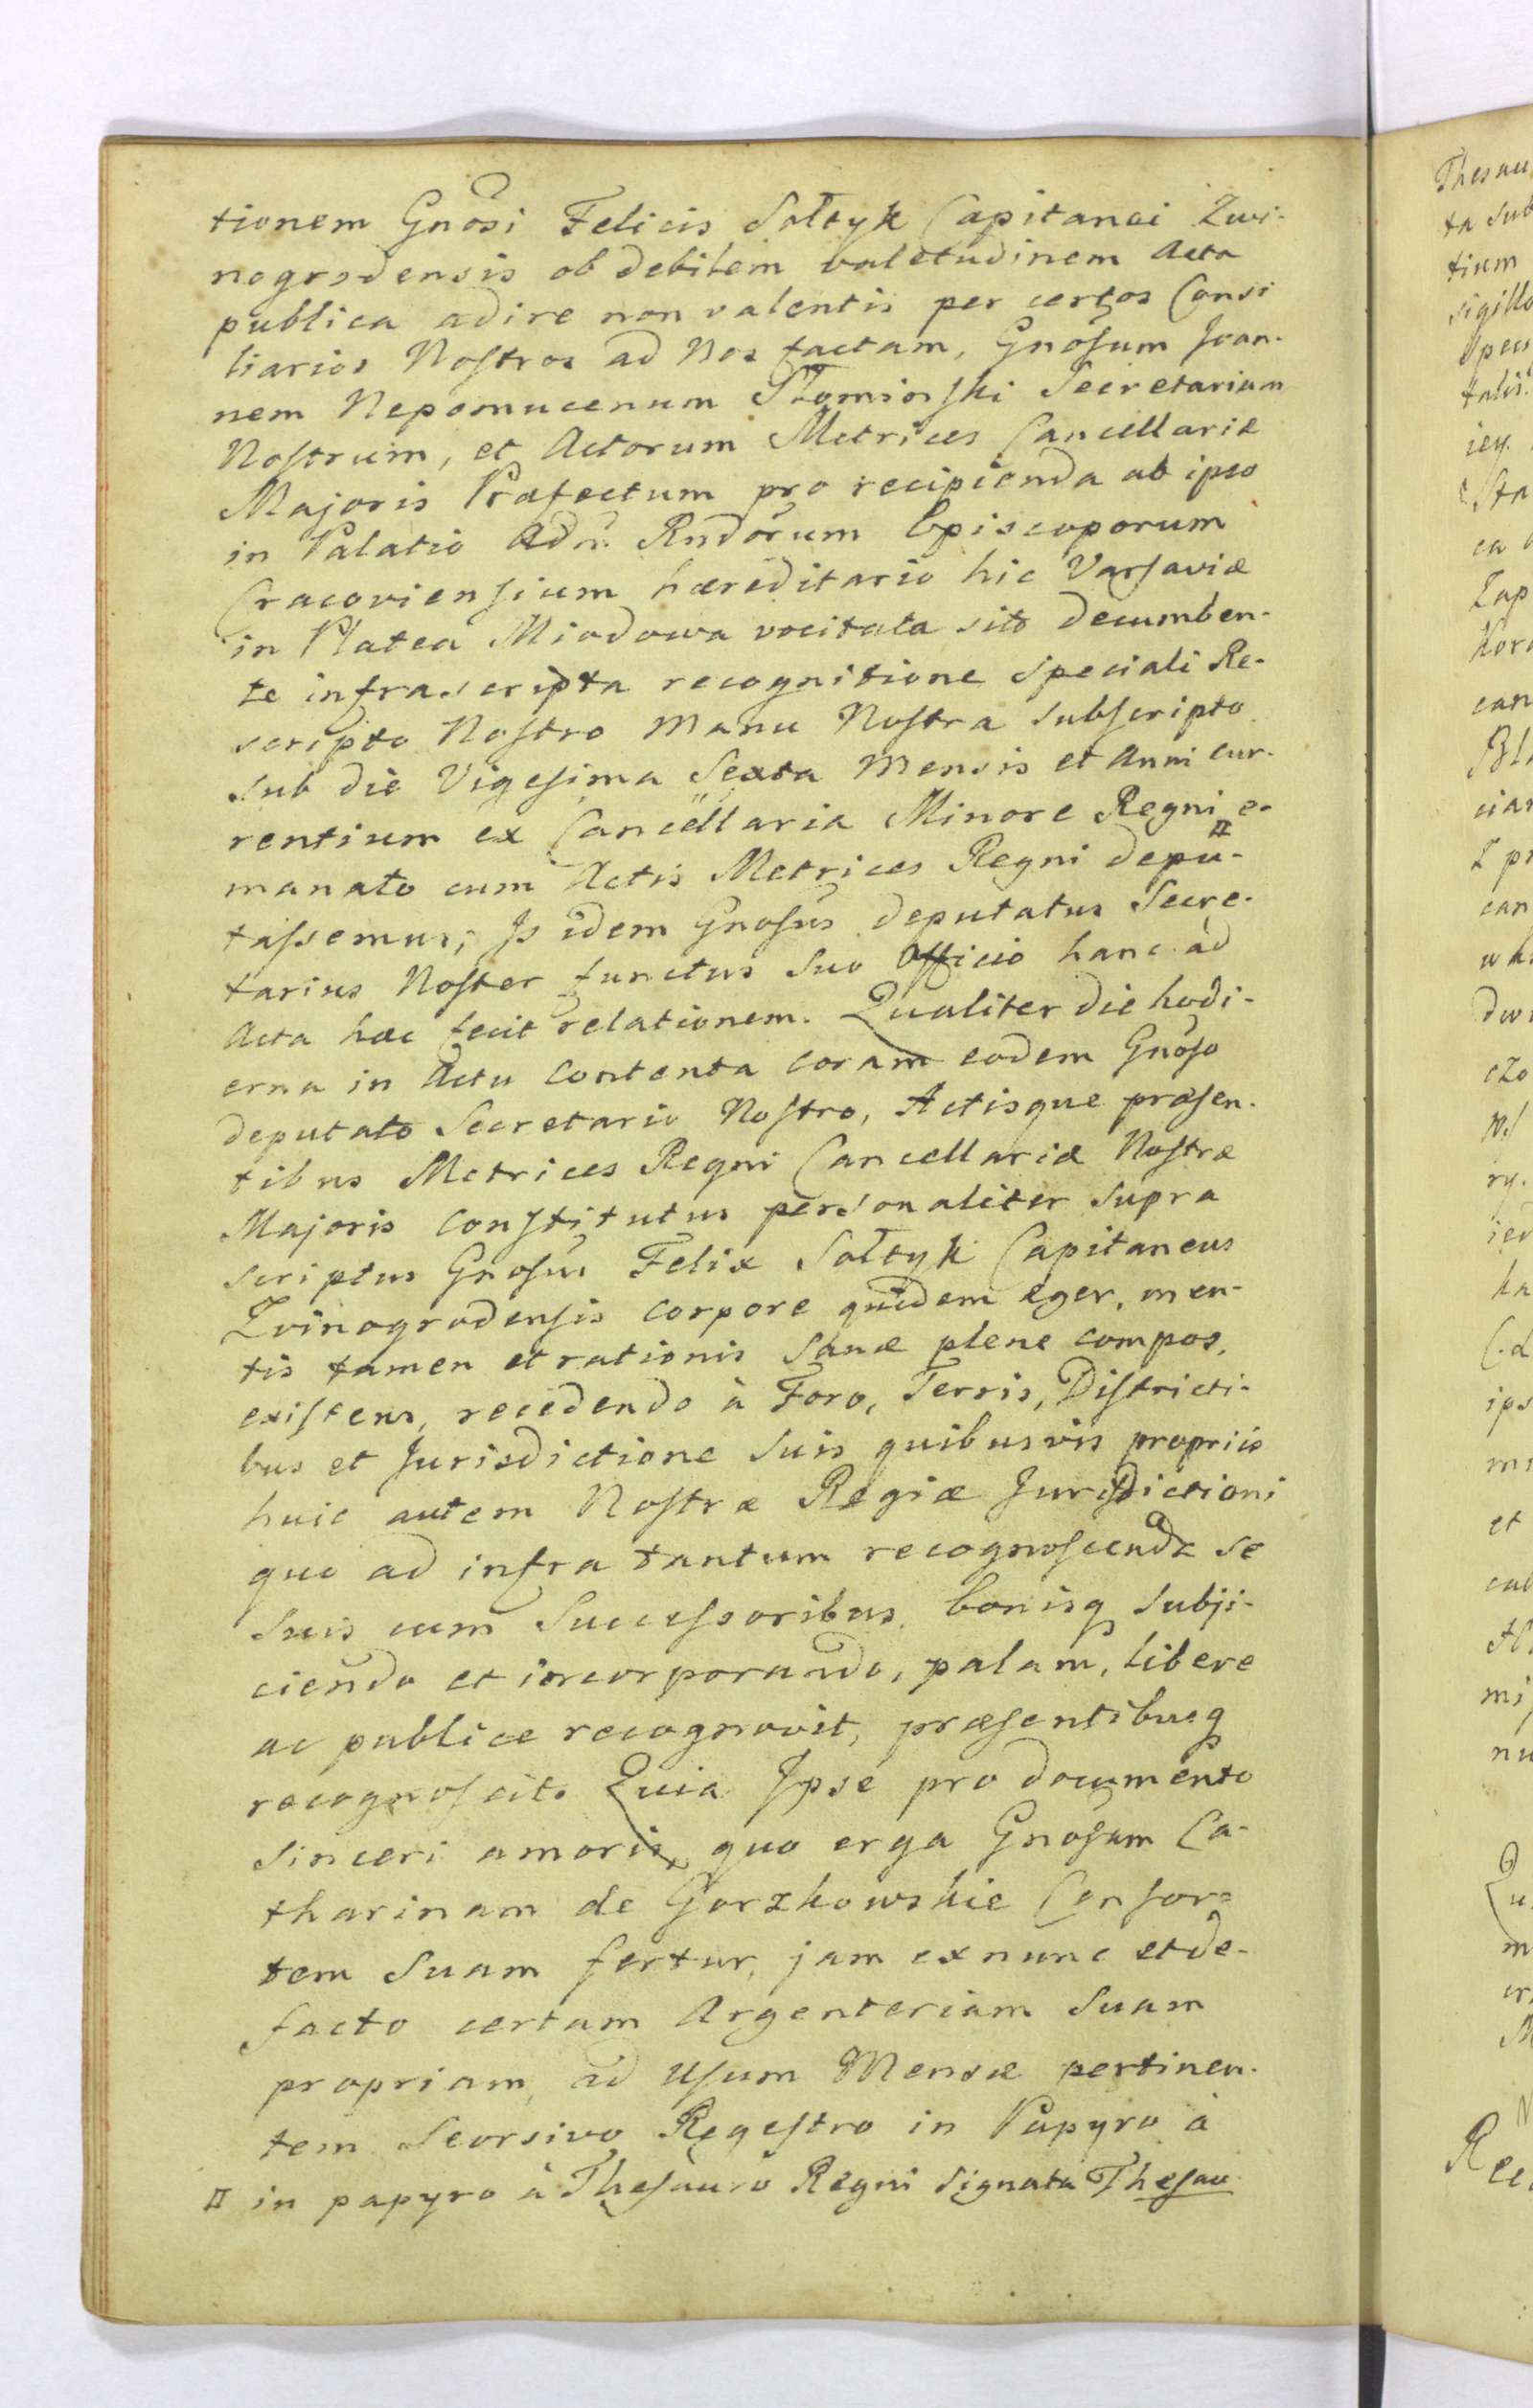 tionem Gnosi Felicis Sołtyk Capitanei Zwi-
nogrodensis ob debilem valetudinem Acta
publica adire non valentis per certos Consi
liarios Nostros ad Nos factam, Gnosum Joan-
nem Nepomucenum Słomiński Secretarium
Nostrum, et Actorum Metrices Cancellariæ
Majoris Præfectum pro recipienda ab ipso
in Palatio Rndorum Episcoporum
Cracoviensium hæreditario hic Varsaviæ
in Platea Miodowa vocitata sito decumben-
te infrascripta recognitione speciali Re-
scripto Nostro Manu Nostra subscripto
sub die Vigesima Sexta Mensis et Anni cur-
rentium ex Cancellaria Minore Regni e-
manato cum Actis Metrices Regni ¤ depu-
tassemus; Is idem Gnosus deputatus Secre-
tarius Noster functus suo Officio hanc ad
Acta hæc fecit relationem. Qualiter die hodi-
erna in Actu Contenta coram eodem Gnoso
deputato Secretario Nostro, Actisque præsen-
tibus Metrices Regni Cancellariæ Nostræ
Majoris Constitutus personaliter supra
scriptus Gnosus Felix Sołtyk Capitaneus
Zvinogrodensis corpore quidem eger, men-
tis tamen et rationis sanæ plene compos,
existens, recedendo à Foro, Terris, Districti-
bus et Jurisdictione suis quibusvis propriis
huic autem Nostræ Regiæ Jurisdictioni
quo ad infra tantum recognoscenda se
suis cum Successoribus, bonisq subji-
ciendo et incorporando, palam, libere
ac publice recognovit, præsentibusq
recognoscit. Quia Ipse pro documento
sinceri amoris, quo erga Gnosam Ca-
tharinam de Gorzkowskie Consor=
tem Suam fertur, jam ex nunc et de-
facto certam Argenteriam Suam
propriam, ad Usum Mensæ pertinen-
tem Seorsivo Regestro in Papyro à
¤ in papyro à Thesauro Regni signata Thesau